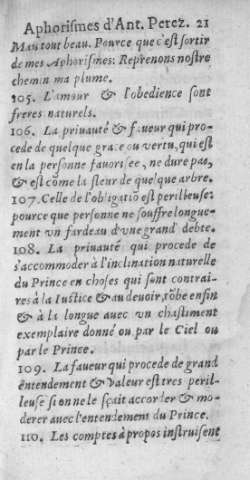 Aphorismes d'Ant. Perez. 21
Mau tout beau. Pource que c'est sortir
de mes Aphorismes: Reprenons nostre
chemin ma plume.
105. L'amour & l'obedience sont
freres naturels.
106. La priuauté & faueur qui pro-
cede de quelque grace ou vertu, qui est
en la personne fauorisee, ne dure pas,
& est cõme la fleur de quelque arbre.
107. Celle de l'obligatiõ est perilleuse:
pource que personne ne souffre longue-
ment vn fardeau d'vne grand debte.
108. La priuauté qui procede de
s'accommoder à l'inclination naturelle
du Prince en choses qui sont contrai-
res à la Iustice & au deuoir, tõbe enfin
& à la longue auec vn chastiment
exemplaire donné ou par le Ciel ou
par le Prince.
109. La faueur qui procede de grand
êntendement & valeur est tres peril-
leuse si on ne sçait accorder & mo-
derer auec l'entendement du Prince.
110. Les comptes à propos instruisent